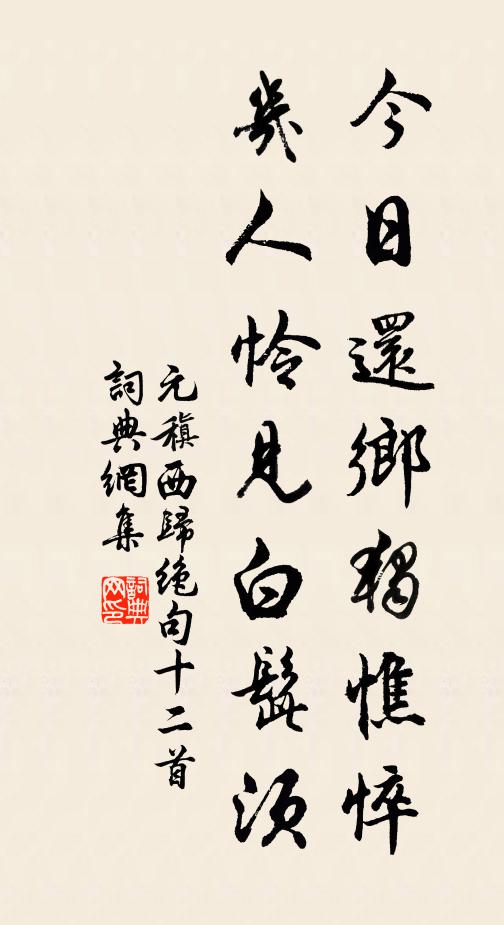 今日還鄉獨憔悴
幾人怜見白髭須
元稹西歸绝句十二首
詞典網集
詞典
网印